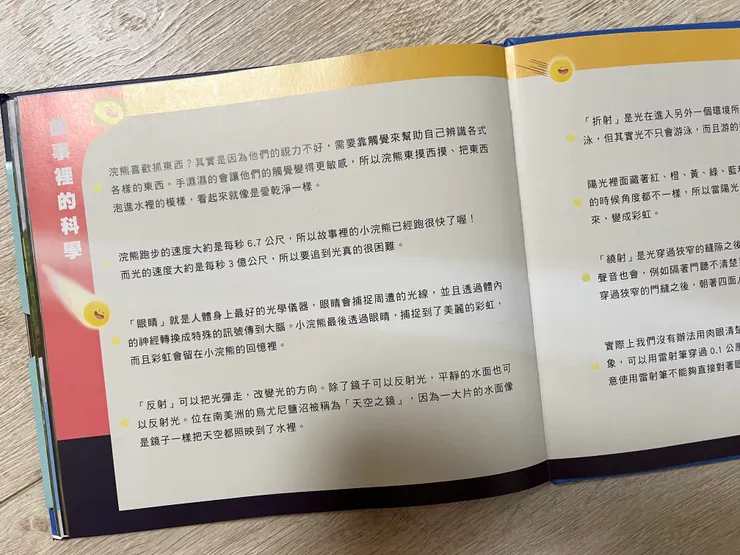 故事裡的科學
浣熊喜歡抓東西？其實是因為他們的視力不好，需要靠觸覺來幫助自己辨識各式
各樣的東西。手濕濕的會讓他們的觸覺變得更敏感，所以浣熊東摸西摸、把東西
泡進水裡的模樣，看起來就像是愛乾淨一樣。
浣熊跑步的速度大約是每秒 6.7 公尺，所以故事裡的小浣熊已經跑很快了喔！
而光的速度大約是每秒 3 億公尺，所以要追到光真的很困難。
「眼睛」就是人體身上最好的光學儀器，眼睛會捕捉周遭的光線，並且透過體內
的神經轉換成特殊的訊號傳到大腦。小浣熊最後透過眼睛，捕捉到了美麗的彩虹，
而且彩虹會留在小浣熊的回憶裡。
「反射」可以把光彈走，改變光的方向。除了鏡子可以反射光，平靜的水面也可
以反射光。位在南美洲的烏尤尼鹽沼被稱為「天空之鏡」，因為一大片的水面像
是鏡子一樣把天空都照映到了水裡。
「折射」是光在進入另外一個環境所
泳，但其實光不只會游泳，而且游的
陽光裡面藏著紅、橙、黃、綠、藍
的時候角度都不一樣，所以當陽光
來，變成彩虹。
「繞射」是光穿過狹窄的縫隙之後
聲音也會，例如隔著門聽不清楚
穿過狹窄的門縫之後，朝著四面
實際上我們沒有辦法用肉眼清楚
象，可以用雷射筆穿過 0.1 公厘
意使用雷射筆不能夠直接對著眼